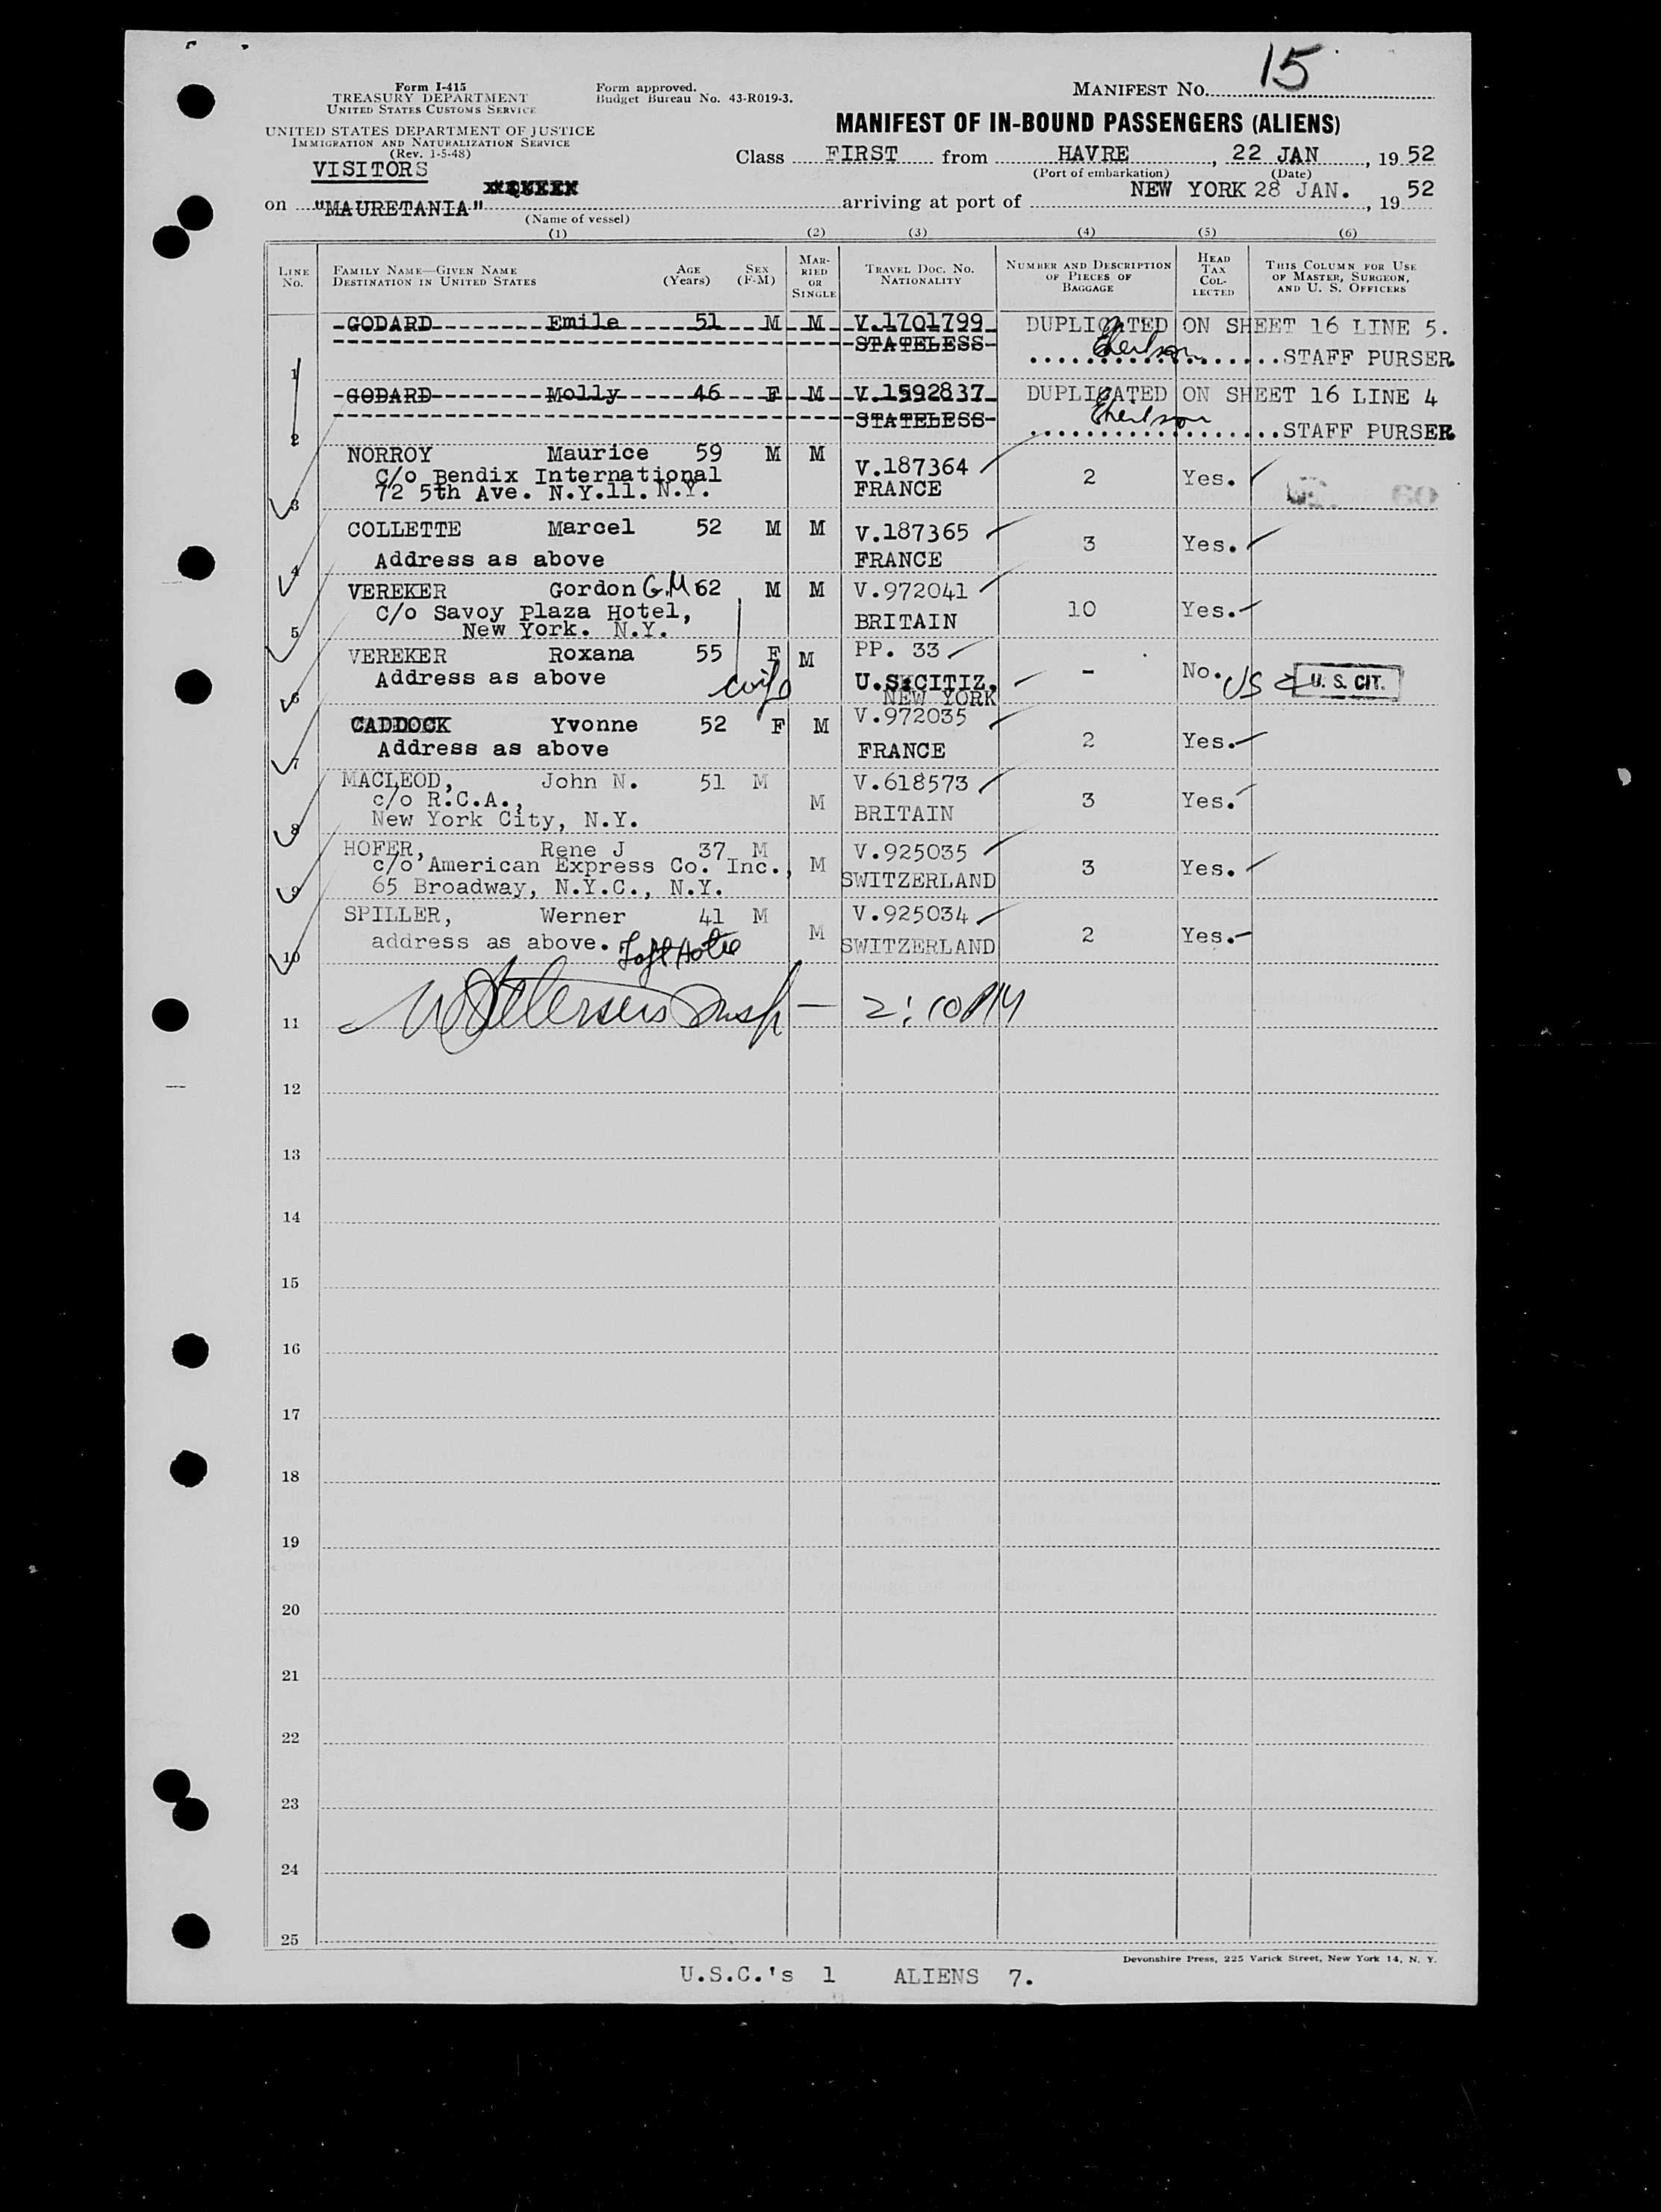 15
Form I-415
TREASURY DEPARTMENT
UNITED STATES CUSTOMS SERVICE
Form approved.
Budget Bureau No. 43-R019-3.
MANIFEST No.
UNITED STATES DEPARTMENT OF JUSTICE
IMMIGRATION AND NATURALIZATION SERVICE
(Rev. 1-5-48)
VISITORS
MANIFEST OF IN-BOUND PASSENGERS (ALIENS)
Class FIRST from HAVRE, 22 JAN, 19 52
(Port of embarkation) (Date)
on "MAURETANIA" arriving at port of NEW YORK 28 JAN., 19 52
(Name of vessel)
(1) (2) (3) (4) (5) (6)
LINE No. FAMILY NAME—GIVEN NAME DESTINATION IN UNITED STATES AGE (Years) SEX (F-M) MARRIED OR SINGLE TRAVEL DOC. NO. NATIONALITY NUMBER AND DESCRIPTION OF PIECES OF BAGGAGE HEAD TAX COLLECTED THIS COLUMN FOR USE OF MASTER, SURGEON, AND U. S. OFFICERS
GODARD Emile 51 M M V.1701799 DUPLICATED ON SHEET 16 LINE 5.
STATELESS
1 STAFF PURSER
GODARD Molly 46 F M V.1592837 DUPLICATED ON SHEET 16 LINE 4
STATELESS
2 STAFF PURSER
NORROY Maurice 59 M M V.187364 2 Yes.
C/o Bendix International
3 72 5th Ave. N.Y.11. N.Y. FRANCE 60
COLLETTE Marcel 52 M M V.187365 3 Yes.
4 Address as above FRANCE
VEREKER Gordon G.M 62 M M V.972041 10 Yes.
C/o Savoy Plaza Hotel, BRITAIN
5 New York. N.Y.
VEREKER Roxana 55 F M PP. 33 - No. US C U. S. CIT.
6 Address as above wife U.S.CITIZ.
NEW YORK
CADDOCK Yvonne 52 F M V.972035 2 Yes.
7 Address as above FRANCE
MACLEOD, John N. 51 M M V.618573 3 Yes.
c/o R.C.A., BRITAIN
8 New York City, N.Y.
HOFER, Rene J 37 M M V.925035 3 Yes.
c/o American Express Co. Inc., SWITZERLAND
9 65 Broadway, N.Y.C., N.Y.
SPILLER, Werner 41 M M V.925034 2 Yes.
10 address as above. Taft Hotel SWITZERLAND
11 Insp — 2:10 PM
12
13
14
15
16
17
18
19
20
21
22
23
24
25
Devonshire Press, 225 Varick Street, New York 14, N. Y.
U.S.C.'s 1 ALIENS 7.